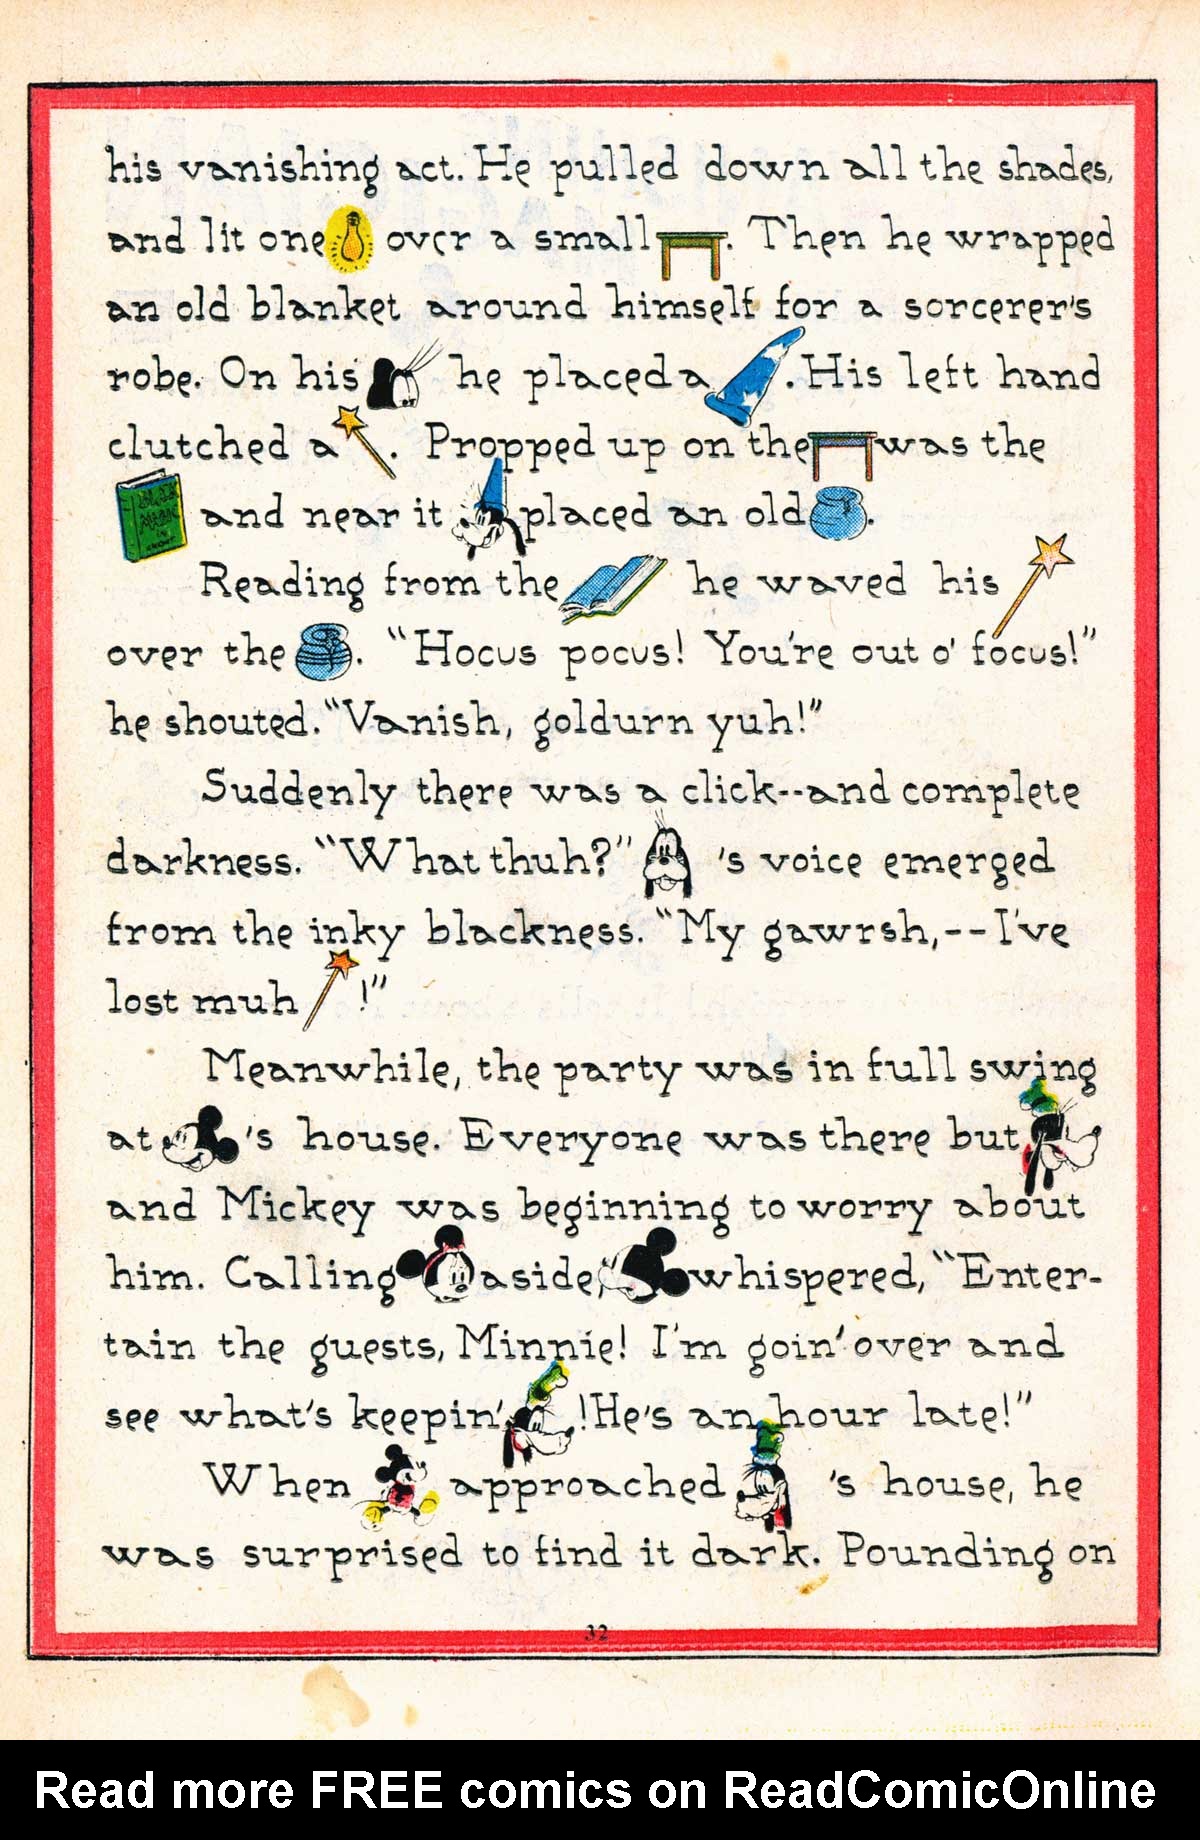 his vanishing act. He pulled down all the shades,
and lit one over a small . Then he wrapped
an old blanket around himself for a sorcerer's
robe. On his he placed a . His left hand
clutched a . Propped up on the was the
BLACK MAGIC and near it placed an old .
Reading from the he waved his
over the . "Hocus pocus! You're out o' focus!"
he shouted. "Vanish, goldurn yuh!"
Suddenly there was a click--and complete
darkness. "What thuh?" 's voice emerged
from the inky blackness. "My gawrsh,--I've
lost muh !"
Meanwhile, the party was in full swing
at 's house. Everyone was there but
and Mickey was beginning to worry about
him. Calling aside, whispered, "Enter-
tain the guests, Minnie! I'm goin' over and
see what's keepin' ! He's an hour late!"
When approached 's house, he
was surprised to find it dark. Pounding on
32
Read more FREE comics on ReadComicOnline